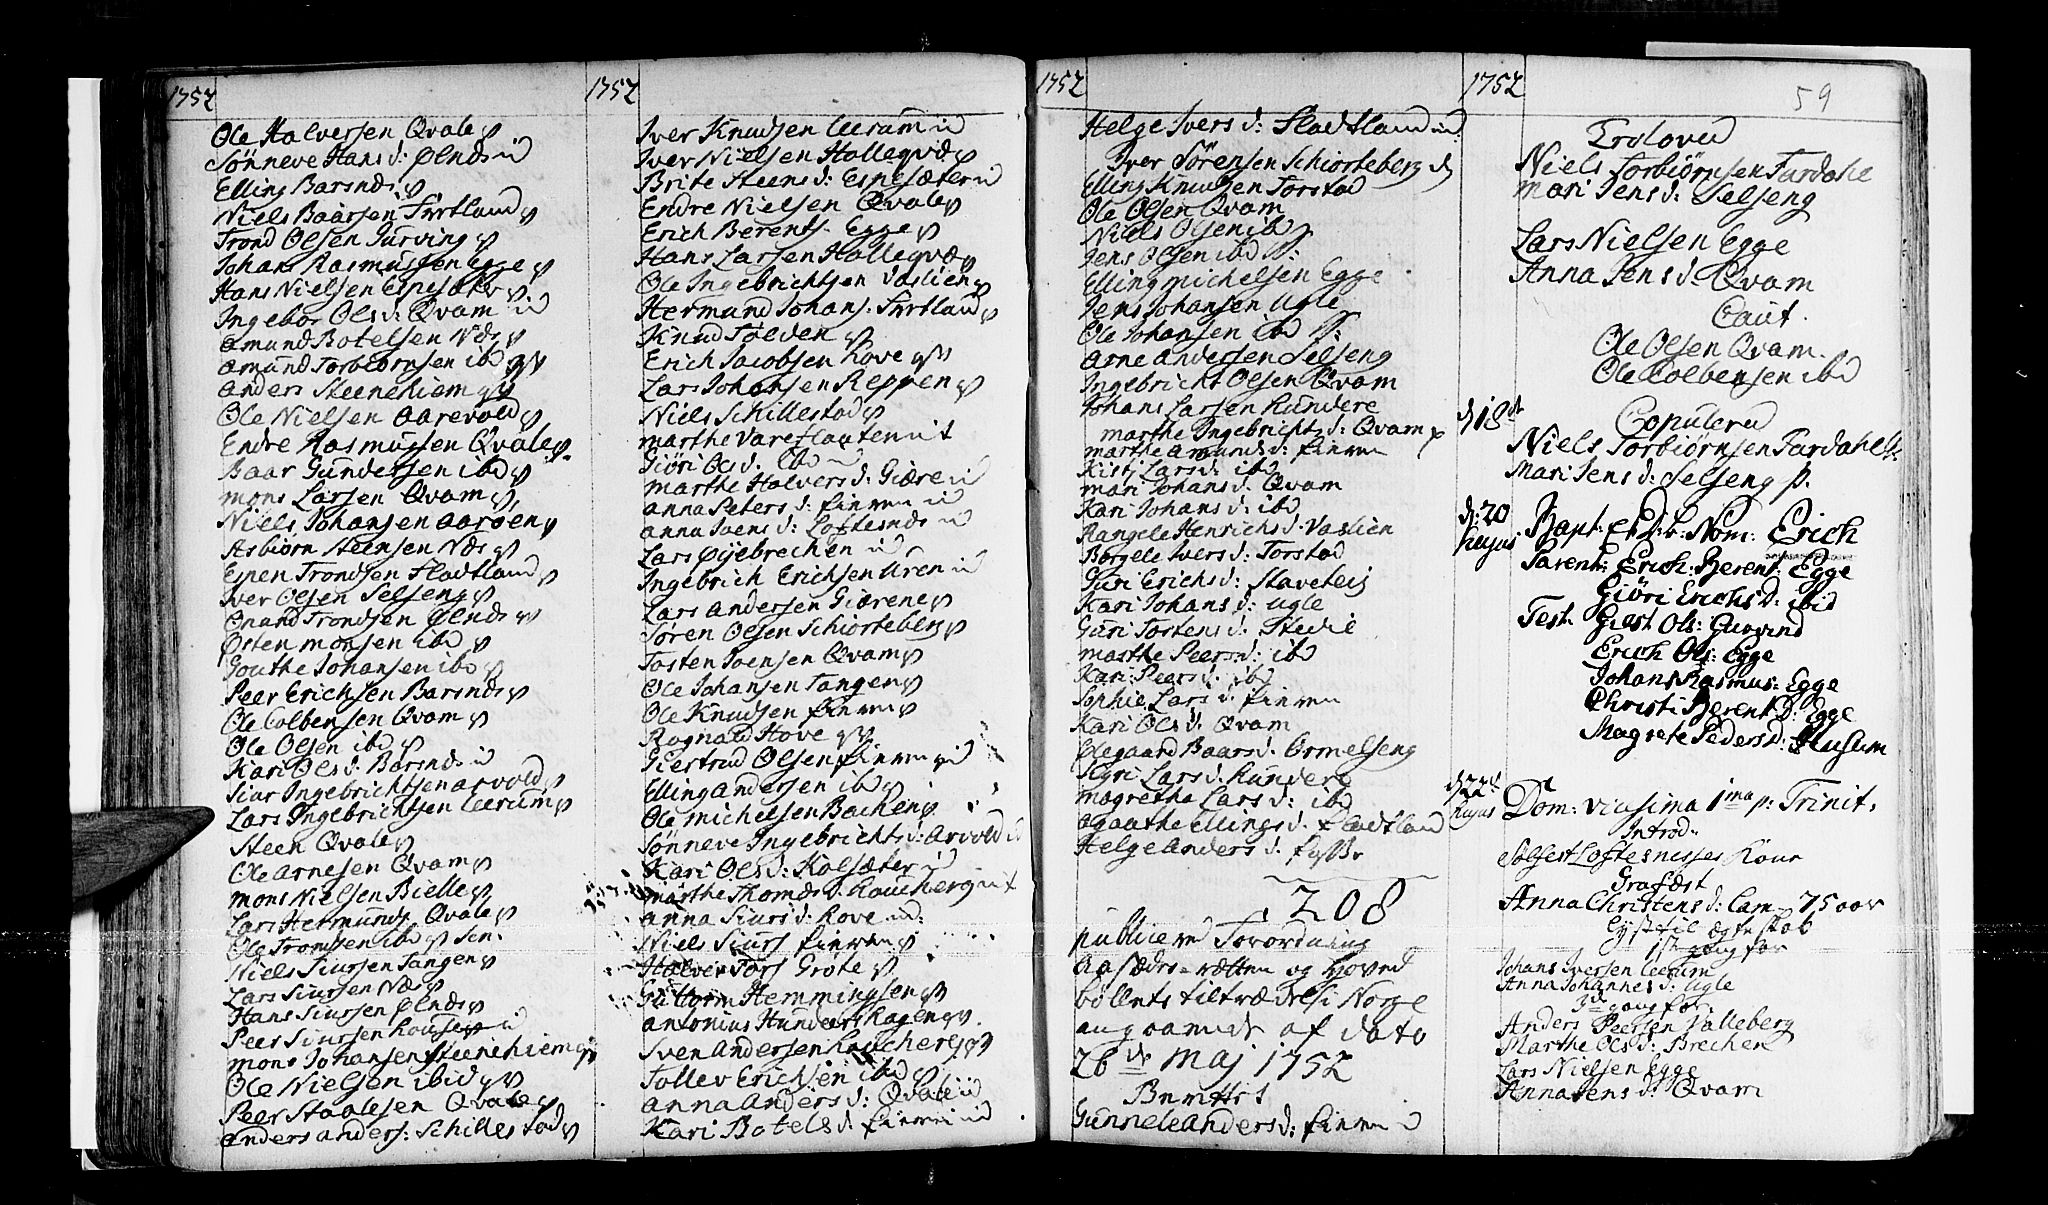 1752
Ole Halversen Qvale
Sønneve Hans d: Ølnds
Elling Barsnds
Niels Baarsen Furtland
Trond Olsen Turving
Johans Rasmussen Egge
Hans Nielsen Espesæter
Ingebor Ols d: Qvam
Amund Botelsen Næs
Amund Torbiørnsen ibd
Anders Steenehiem
Ole Nielsen Aarevold
Endre Rasmussen Qvale
Baar Gundersen ibd
Mons Larsen Qvam
Niels Johansen Aarøen
Asbiørn Steensen Næs
Espen Trondsen Fladtland
Iver Olsen Selseng
Onand Trondsen Ølnds
Østen Monsen ibd
Gouthe Johansen ibd
Peer Erichsen Barsnds
Ole Colbensen Qvam
Ole Olsen ibd
Kari Ols d: Barsnds
Siur Ingebrichtsen Arvold
Lars Ingebrichtsen Leerum
Steen Qvale
Ole Arnesen Qvam
Mons Nielsen Bielle
Lars Hermunds Qvale
Ole Tromsen ibd sen.
Niels Siursen Tangen
Lars Siursen Næs
Hans Siursen Ølnds
Peer Siursen
Mons Johansen Steenehiem
Ole Nielsen ibid
Peer Staalesen Qvale
Anders Anders: Schillestad
1752
Iver Knudsen Leerum
Iver Nielsen Holleqvæ
Brite Steens d: Espesæter
Endre Nielsen Qvale
Erich Berents: Egge
Hans Larsen Holleqvæ
Ole Ingebrichtsen Vaslien
Hermund Johans: Furtland
Knud Tølden
Erich Jacobsen Hove
Lars Johansen Reppen
Niels Schillestad
Marthe Vareflaaten
Giøri Ols d. ibd
Marthe Halvers d: Giære
Anna Peters d: finmn
Anna Joens d: Loftesnds
Lars Øyebrechen
Ingebrich Erichsen Uren
Lars Andersen Giærene
Søren Olsen Schiorteberg
Tosten Joensen Qvam
Ole Johansen Tangen
Ole Knudsen finmn
Rognald Hove
Giertrud Olsen finmn
Elling Andersen ibd
Ole Michelsen Bachen
Sønneve Ingebrichts d: Arvold
Kari Ols d: Kolsæter
Marthe Thomds d. Koucherg
Anna Siurs d: Hove
Niels Siurs finmn
Halver Tors Grote
Guttorm Hemmingsen
Antonius Hunderi Hagen
Sven Andersen Koucherg
Tollev Erichsen ibd
Anna Anders d: Qvale
Kari Botels d. finmn
1752
Helge Ivers d: Fladtland
Iver Sørensen Schiorteberg
Elling Knudsen Torstad
Ole Olsen Qvam
Niels Olsen ibd
Jens Olsen ibd
Elling Michelsen Egge
Jens Johansen Ugle
Ole Johansen ibd
Arne Andersen Selseng
Ingebricht Olsen Qvam
Johans Larsen Rundere
Marthe Ingebrichts d: Qvam
Marthe Amunds d: finmn
Kisti Lars d: ibd
Mari Johans d. Qvam
Kari Johans d: ibd
Rangele Henrichs d. Vaslien
Børgele Ivers d: Torstad
Guri Erichs d: Staveteig
Kari Johans d: Ugle
Guri Tostens d. Stedie
Marthe Peers d: ibd
Kari Peers d. ibd
Sophie Lars d: finmn
Kari Ols d. Qvam
Edegaard Baars d. Ormelseng
Kyri Lars d: Rundere
Magretha Lars d: ibd
Agaathe Ellings d. Fladtland
Helge Anders d.
208
publicered Forordning
Aasædes-rætten og Hoved
bøllets tiltrædelse i Norge
angaaende af dato
26de Maj 1752
Berettet
Gunnele Anders d: finmn
1752
59
Trolover
Niels Torbiørnsen Fardahl
Mari Jens d: Selseng
Lars Nielsen Egge
Anna Jens d. Qvam
Caut.
Ole Olsen Qvam
Ole Colbensen ibd
d: 18de
Copulered
Niels Torbiørnsen Fardahl
Mari Jens d: Selseng p.
d: 20 hujus
Bapt: Nom: Erich
Parent: Erich: Berent: Egge
Giøri Erichs d: ibid
Test. Giest Ols: Gurvind
Erich Ols: Egge
Johans Rasmus: Egge
Christi Berent d: Egge
Magrete Peders d: Husum
d: 22de hujus
Dom: vicesima 1ma p: Trinit.
Introd:
Solfest Loftesnesses Kone
Grafæst
Anna Christens d: Lam 75 aar
Lyst til ægteskab
1ste gang for
Johans Iversen Leerum
Anna Johannes d: Ugle
3de gang for
Anders Peersen Valleberg
Marthe Ols d: Brechen
Lars Nielsen Egge
Anna Jens d: Qvam